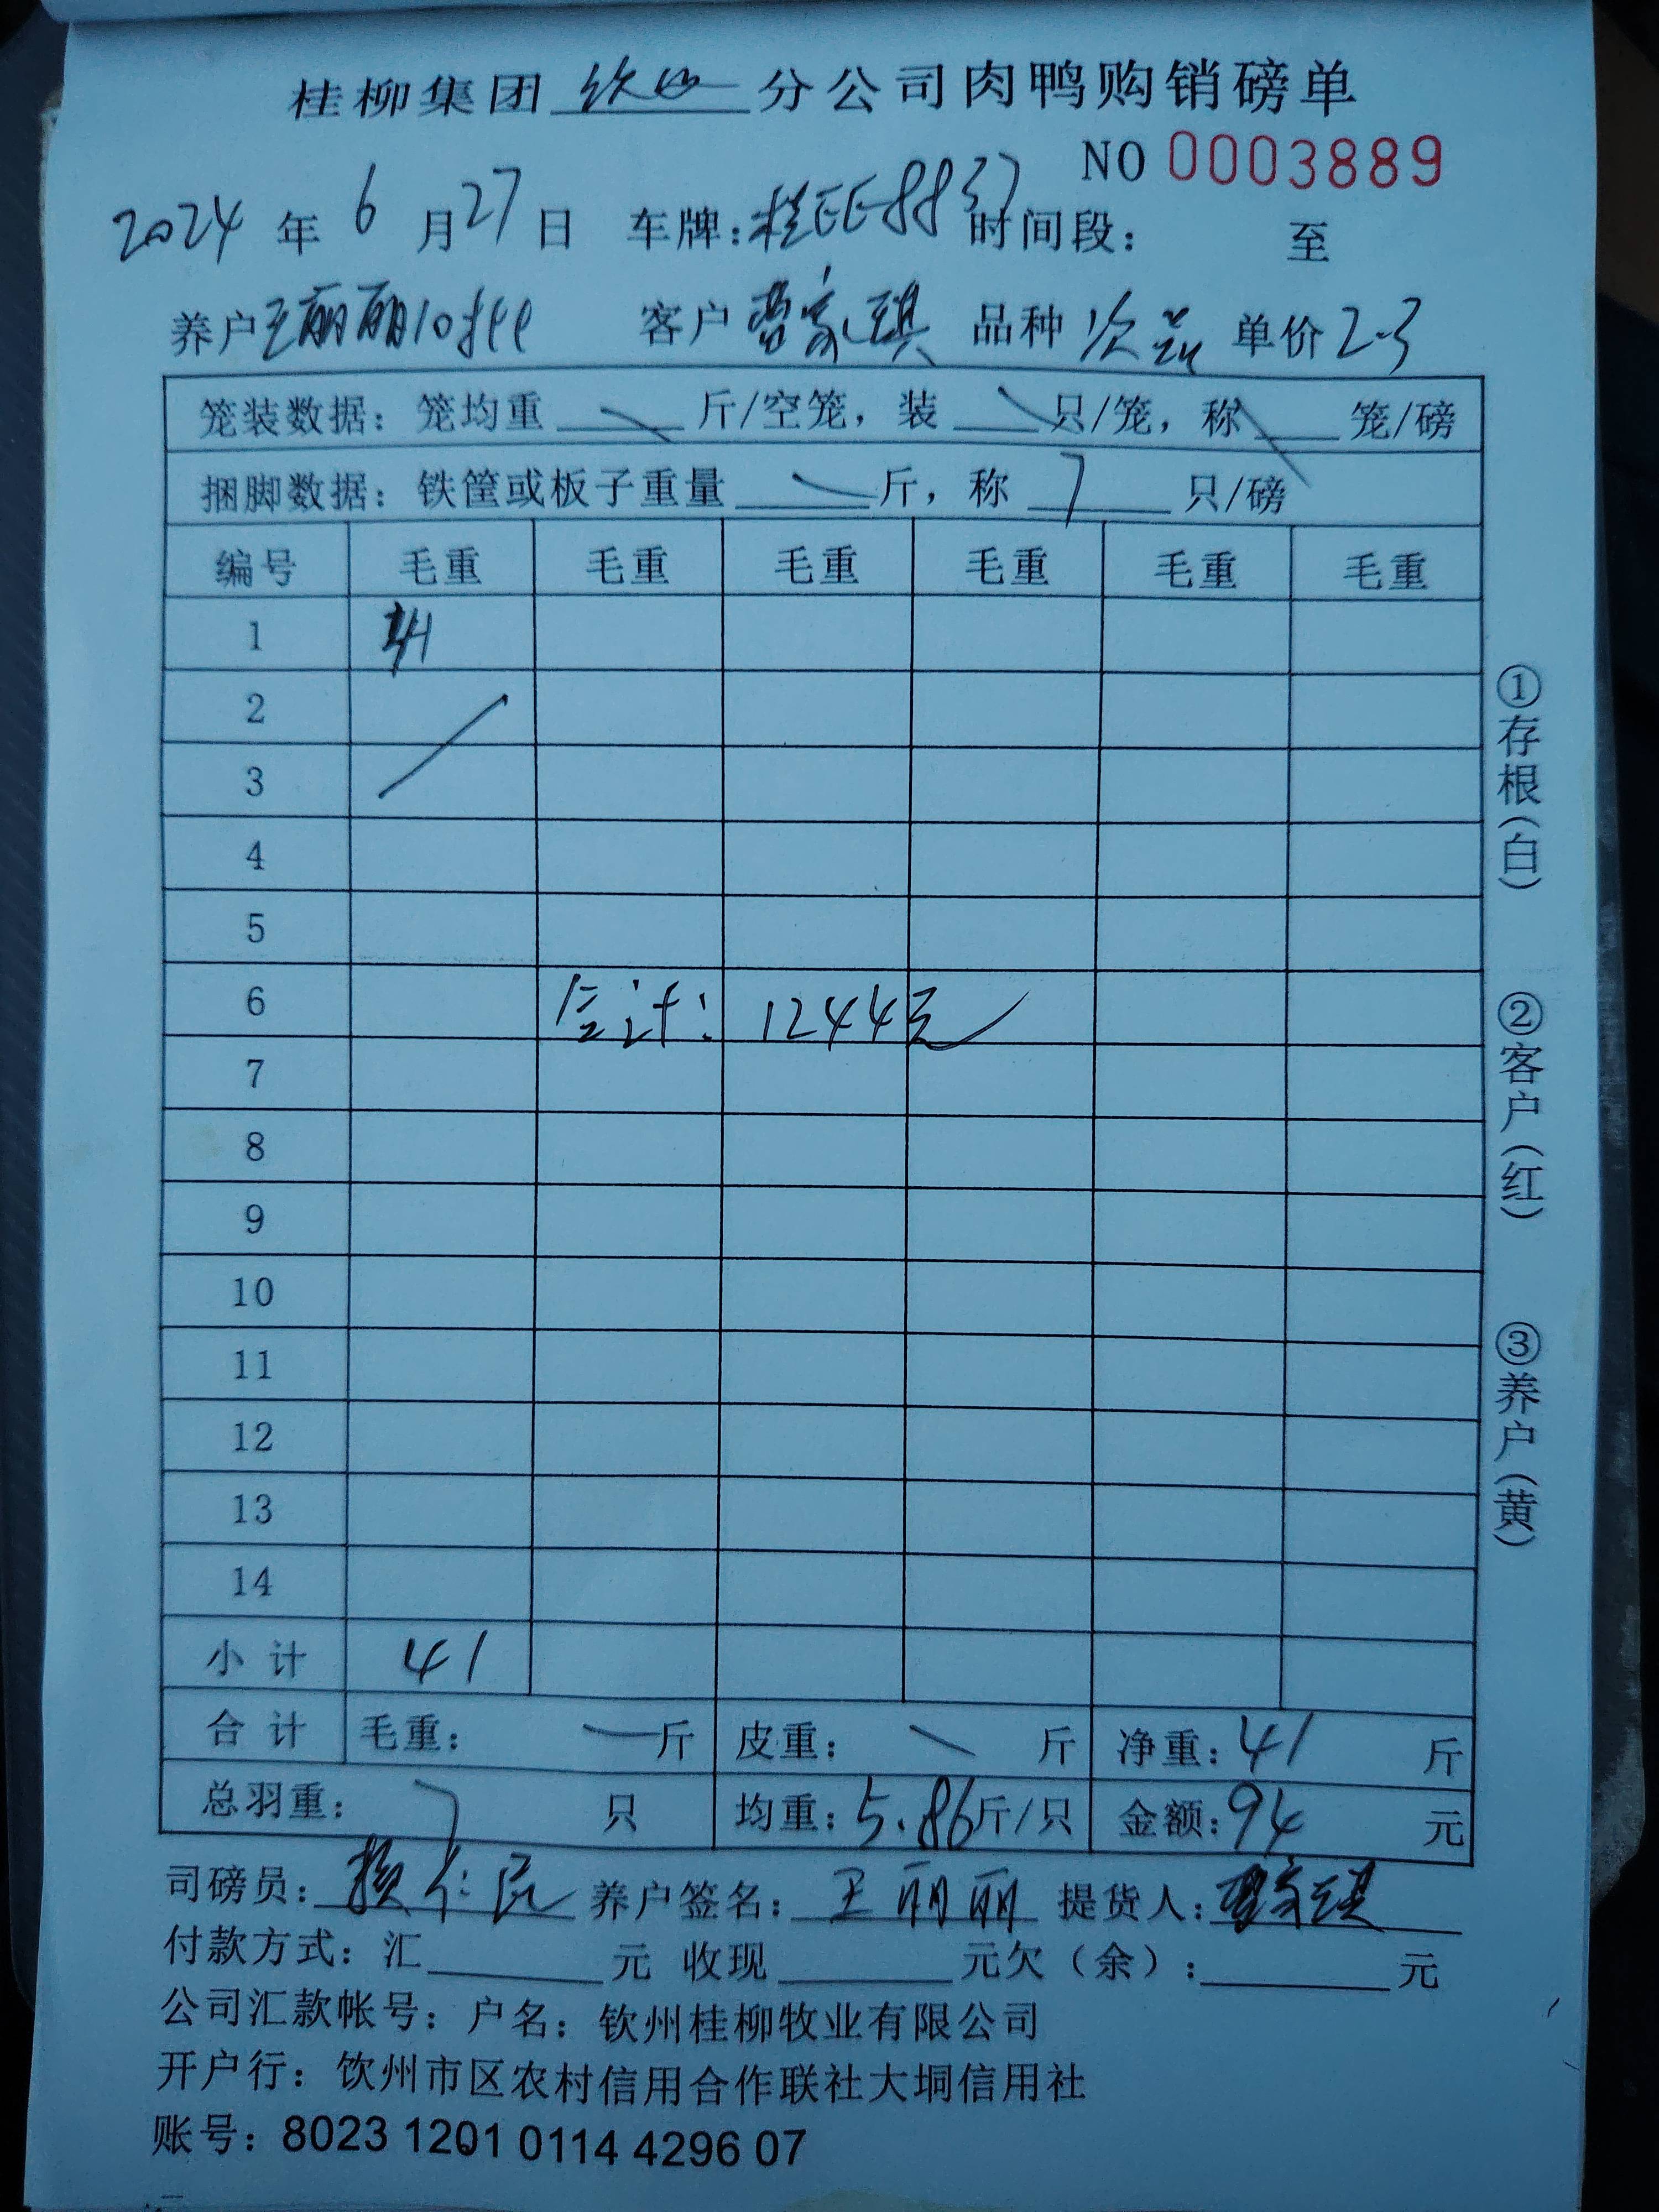 桂柳集团 钦州 分公司肉鸭购销磅单
NO 0003889
2024 年 6 月 27 日 车牌:桂EE8837 时间段: 至
养户 王丽丽10批 客户 曹家琪 品种 次品 单价 2.3
笼装数据: 笼均重 斤/空笼, 装 只/笼, 称 笼/磅
捆脚数据: 铁筐或板子重量 斤, 称 7 只/磅
编号 毛重 毛重 毛重 毛重 毛重 毛重
1 41
2
3
4
5
6 合计: 1244元
7
8
9
10
11
12
13
14
小 计 41
合 计 毛重: 斤 皮重: 斤 净重: 41 斤
总羽重: 7 只 均重: 5.86 斤/只 金额: 94 元
司磅员: 养户签名: 王丽丽 提货人: 曹家琪
付款方式: 汇 元 收现 元欠(余): 元
公司汇款帐号: 户名: 钦州桂柳牧业有限公司
开户行: 钦州市区农村信用合作联社大垌信用社
账号: 8023 1201 0114 4296 07
①存根(白)
②客户(红)
③养户(黄)